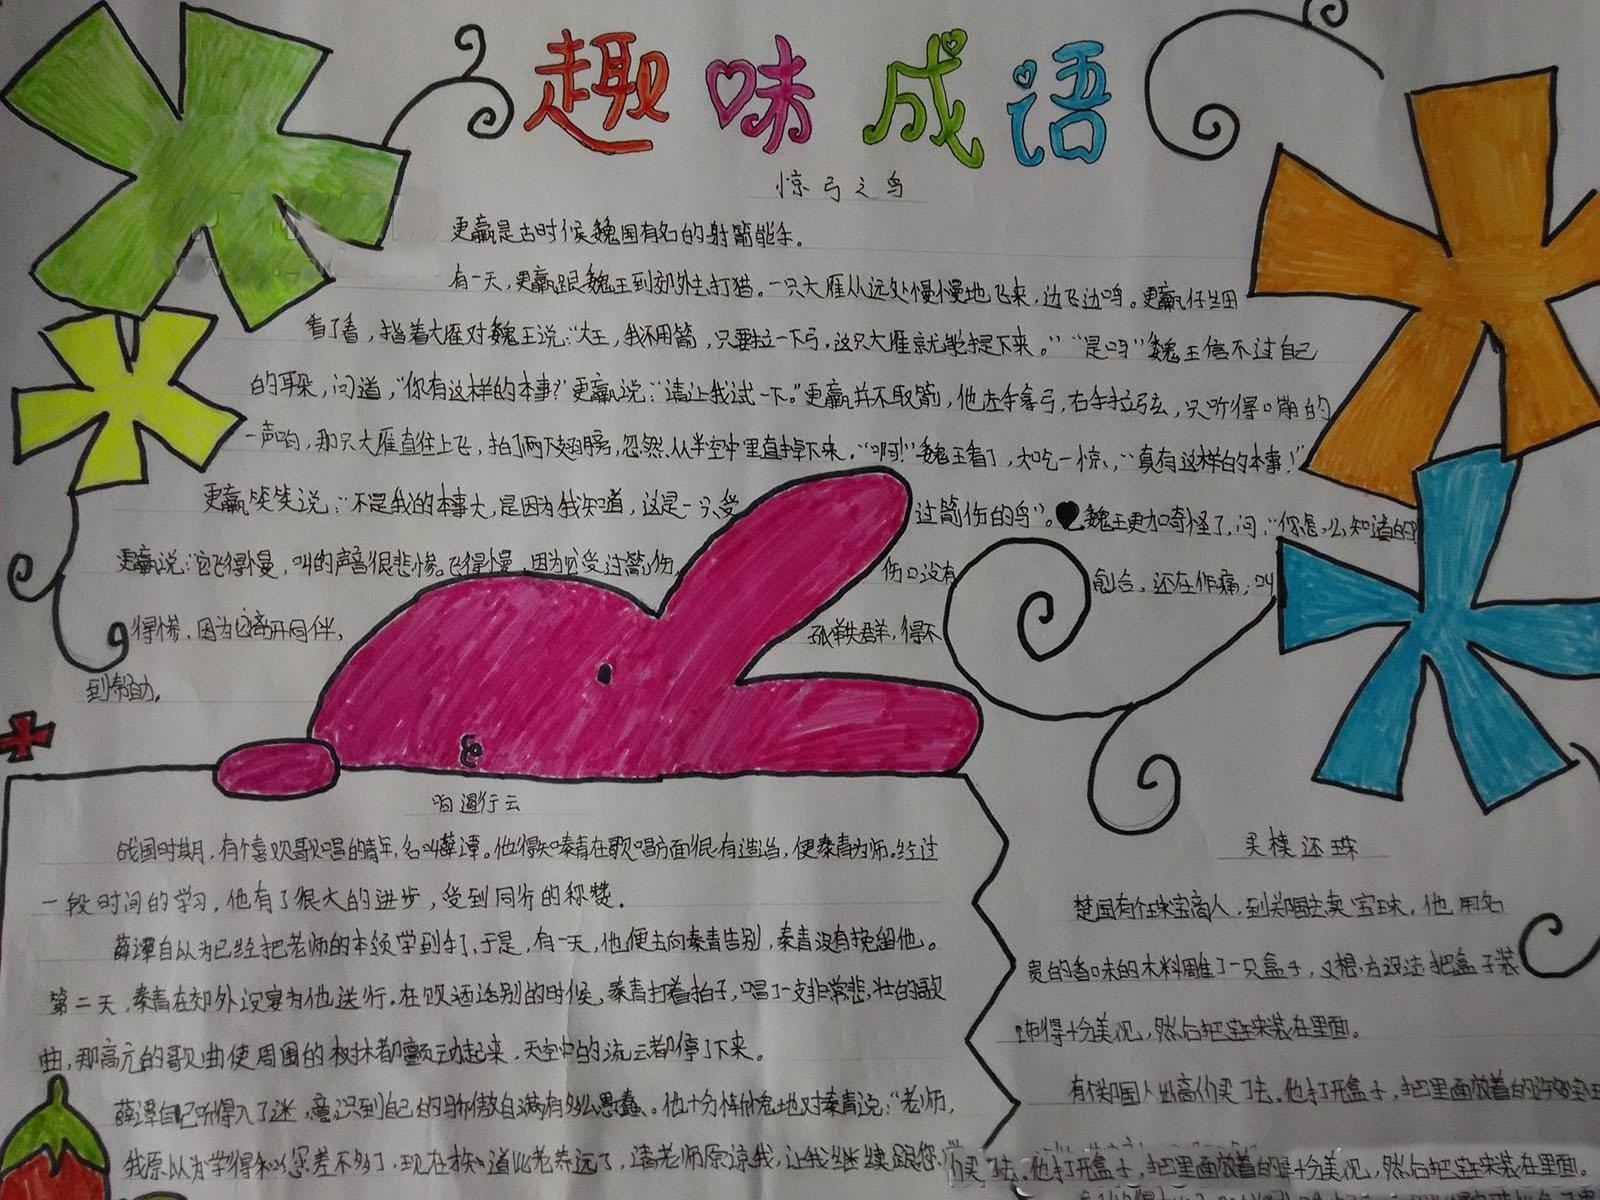 趣味成语
惊弓之鸟
更羸是古时候魏国有名的射箭能手。
有一天，更羸跟魏王到郊外去打猎。一只大雁从远处慢慢地飞来，边飞边鸣。更羸仔细
看了看，指着大雁对魏王说：“大王，我不用箭，只要拉一下弓，这只大雁就能掉下来。”“是吗”魏王信不过自己
的耳朵，问道，“你有这样的本事？”更羸说：“请让我试一下。”更羸并不取箭，他左手拿弓，右手拉弦，只听得嘣的
一声响，那只大雁直往上飞，拍了两下翅膀，忽然从半空中里直掉下来。“啊！”魏王看了，大吃一惊，“真有这样的本事！”
更羸笑笑说：“不是我的本事大，是因为我知道，这是一只受过箭伤的鸟”。魏王更加奇怪了，问，“你怎么知道的？
更羸说：它飞得慢，叫的声音很悲惨。飞得慢，因为它受过箭伤，伤口没有愈合，还在作痛；叫
得惨，因为它离开同伴，孤单失群，得不
到帮助。
响遏行云
战国时期，有个喜欢歌唱的青年，名叫薛谭。他得知秦青在歌唱方面很有造诣，便秦青为师。经过
一段时间的学习，他有了很大的进步，受到同行的称赞。
薛谭自以为已经把老师的本领学到手了，于是，有一天，他便去向秦青告别，秦青没有挽留他。
第二天，秦青在郊外设宴为他送行。在饮酒话别的时候，秦青打着拍子，唱了一支非常悲壮的歌
曲，那高亢的歌曲使周围的树木都颤动起来，天空中的流云都停了下来。
薛谭自己听得入了迷，意识到自己的骄傲自满有多么愚蠢。他十分惭愧地对秦青说：“老师，
我原以为学得和您差不多了，现在才知道比老师差远了，请老师原谅我，让我继续跟您学
买椟还珠
楚国有个珠宝商人，到郑国去卖宝珠，他用名
贵的香味的木料雕了一只盒子，又想方设法把盒子装
饰得十分美观，然后把宝珠装在里面。
有个郑国人出高价买了去，他打开盒子，把里面放着的许多宝珠
价买了去，他打开盒子，把里面放着的十分美观，然后把宝珠装在里面。